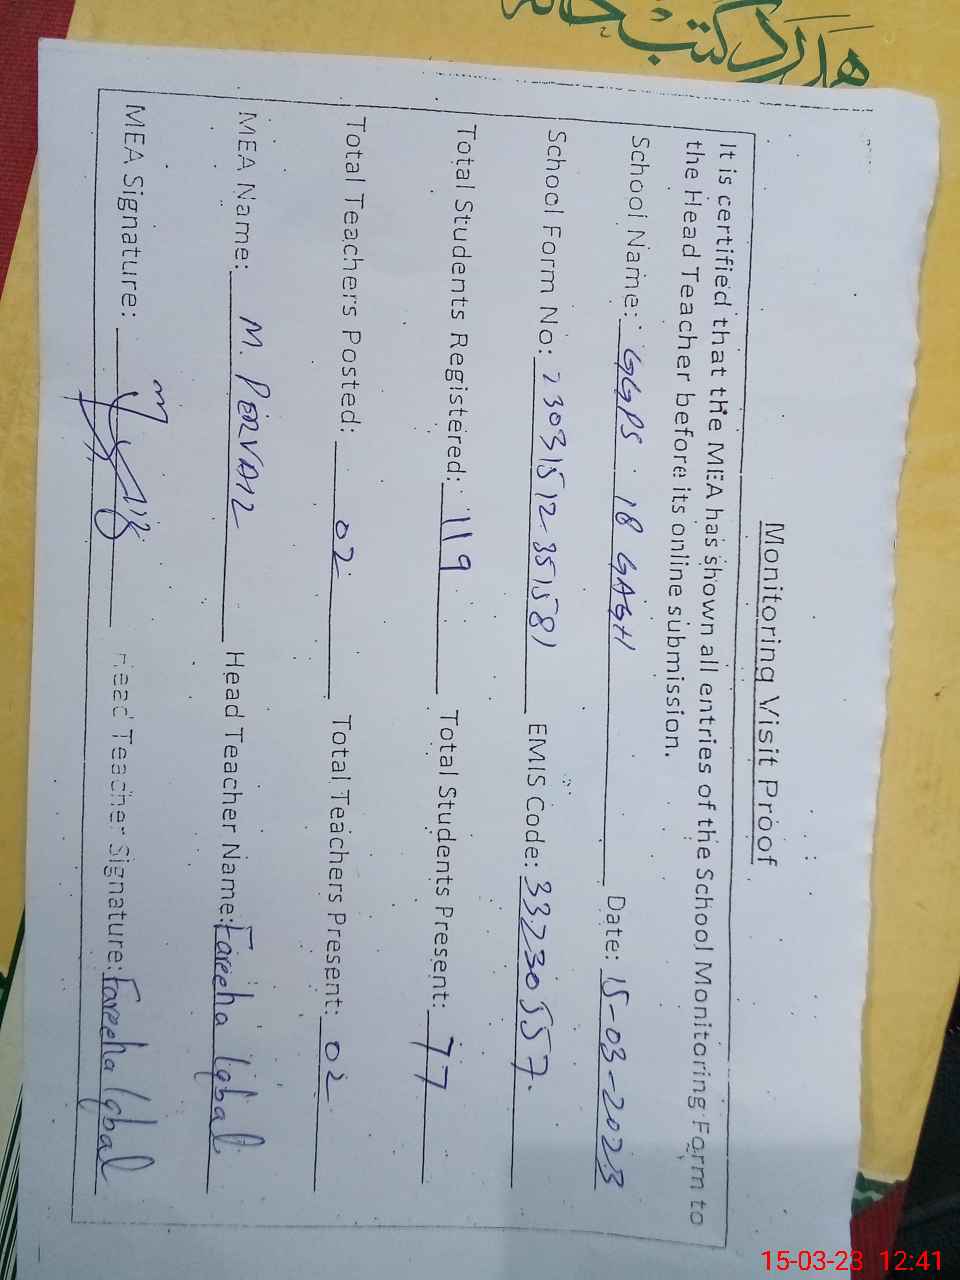 ھمدرد کتب خانہ
Monitoring Visit Proof
It is certified that the MEA has shown all entries of the School Monitoring Form to
the Head Teacher before its online submission.
School Name: GGPS 18 GAGH Date: 15-03-2023
School Form No: 23031512351581 EMIS Code: 33230557.
Total Students Registered: 119 Total Students Present: 77
Total Teachers Posted: 02 Total Teachers Present: 02
MEA Name: M. PERVAIZ Head Teacher Name: Fareeha Iqbal
MEA Signature: Head Teacher Signature: Fareeha Iqbal
15-03-23 12:41